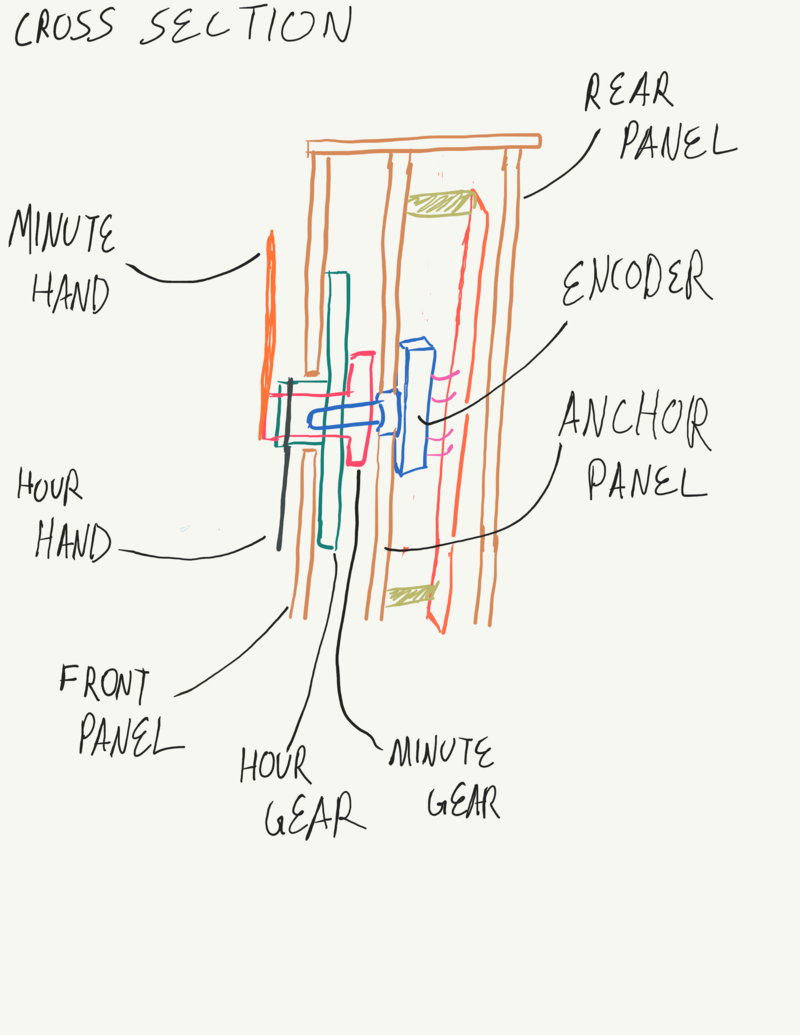 CROSS SECTION
REAR
PANEL
MINUTE
HAND
ENCODER
ANCHOR
PANEL
HOUR
HAND
FRONT
PANEL
HOUR
GEAR
MINUTE
GEAR